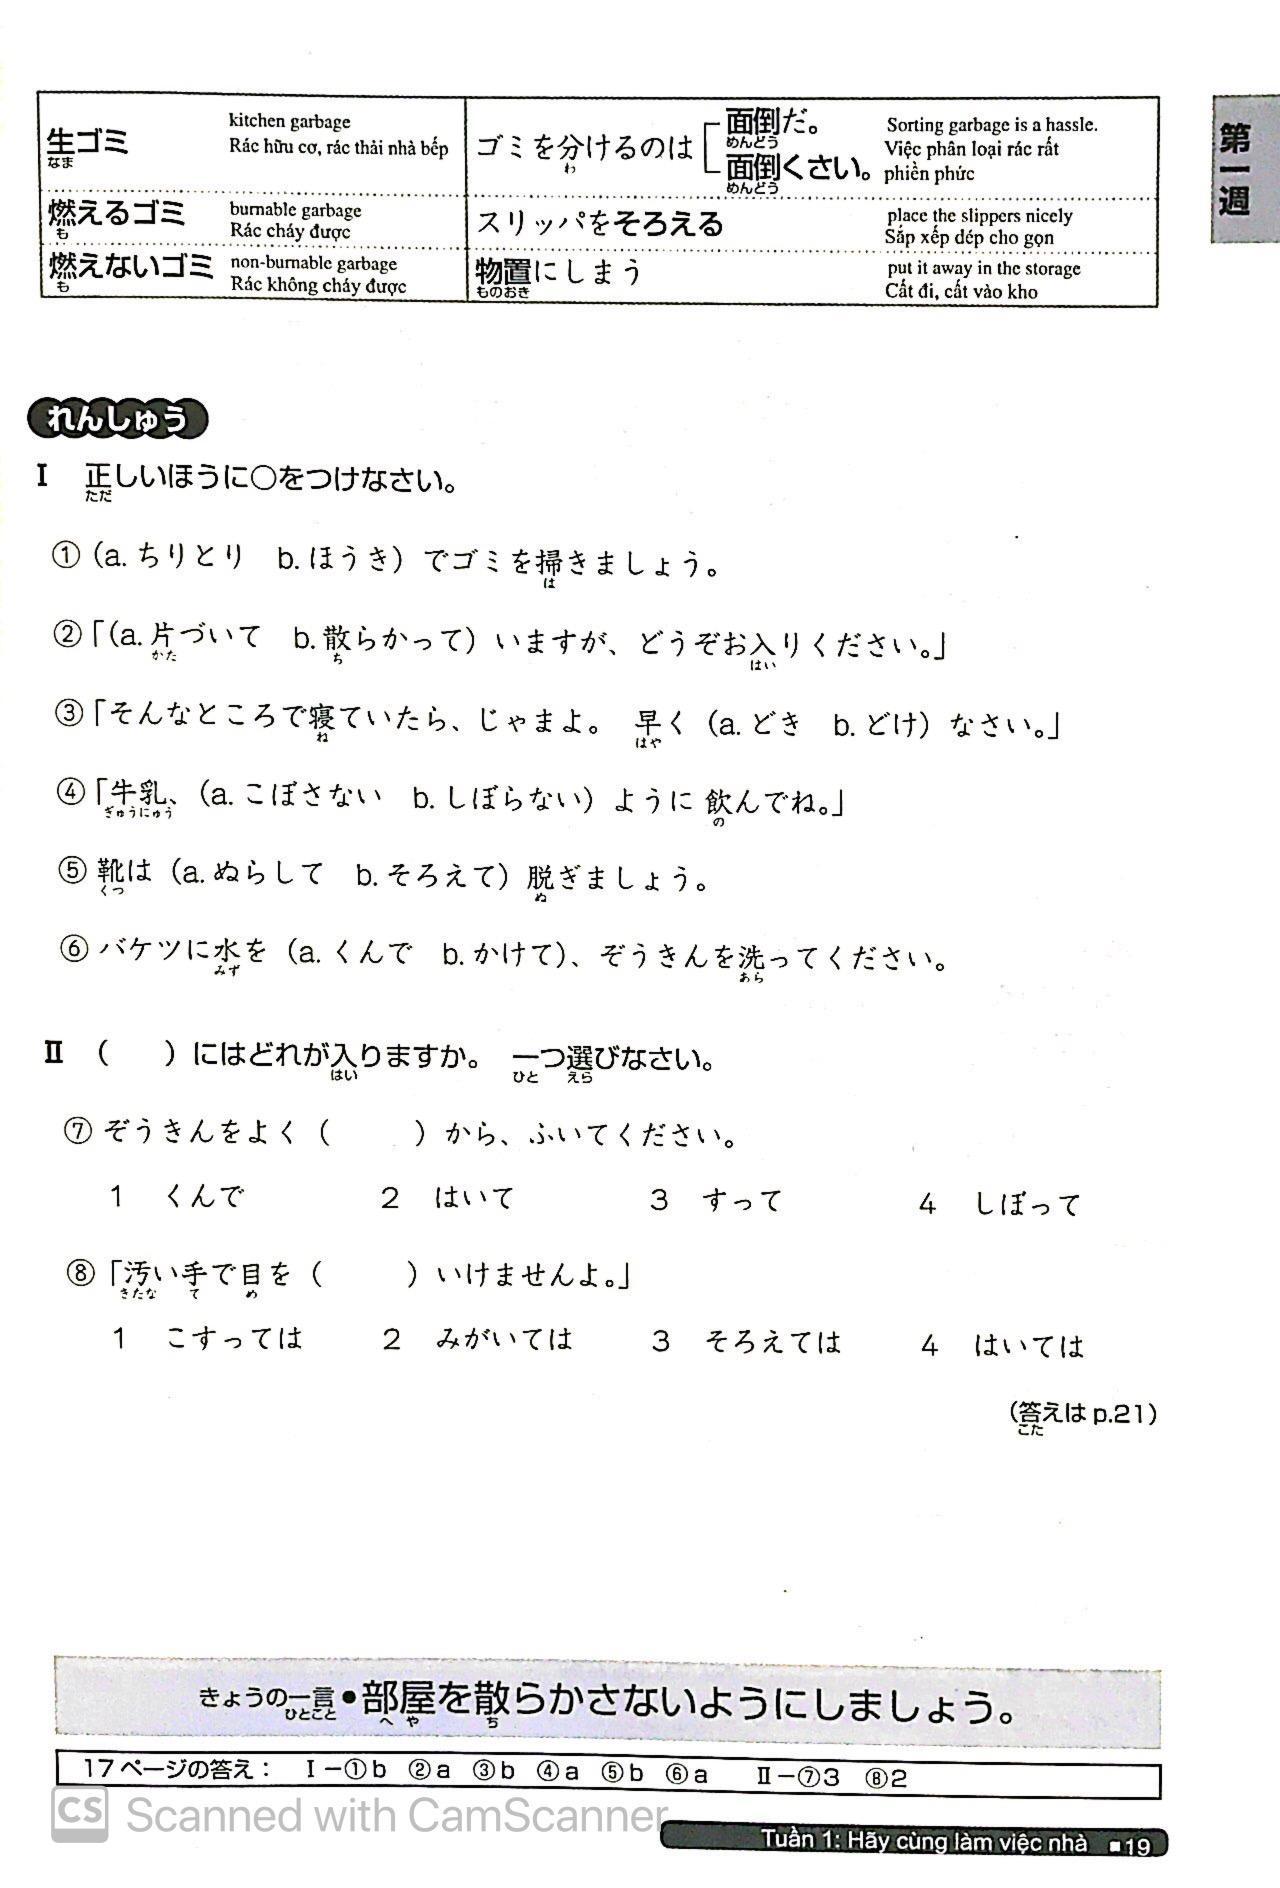 生ゴミ
なま
kitchen garbage
Rác hữu cơ, rác thải nhà bếp
ゴミを分けるのは
わ
面倒だ。
めんどう
面倒くさい。
めんどう
Sorting garbage is a hassle.
Việc phân loại rác rất
phiền phức
燃えるゴミ
も
burnable garbage
Rác cháy được
スリッパをそろえる
place the slippers nicely
Sắp xếp dép cho gọn
燃えないゴミ
も
non-burnable garbage
Rác không cháy được
物置にしまう
ものおき
put it away in the storage
Cất đi, cất vào kho
第一週
れんしゅう
I 正しいほうに○をつけなさい。
ただ
①(a.ちりとり b.ほうき)でゴミを掃きましょう。
は
②「(a.片づいて b.散らかって)いますが、どうぞお入りください。」
かた ち はい
③「そんなところで寝ていたら、じゃまよ。 早く(a.どき b.どけ)なさい。」
ね はや
④「牛乳、(a.こぼさない b.しぼらない)ように飲んでね。」
ぎゅうにゅう の
⑤靴は(a.ぬらして b.そろえて)脱ぎましょう。
くつ ぬ
⑥バケツに水を(a.くんで b.かけて)、ぞうきんを洗ってください。
みず あら
II ( )にはどれが入りますか。 一つ選びなさい。
はい ひと えら
⑦ぞうきんをよく( )から、ふいてください。
1 くんで 2 はいて 3 すって 4 しぼって
⑧「汚い手で目を( )いけませんよ。」
きたな て め
1 こすっては 2 みがいては 3 そろえては 4 はいては
(答えはp.21)
こた
きょうの一言●部屋を散らかさないようにしましょう。
ひとこと へや ち
17ページの答え: I-①b ②a ③b ④a ⑤b ⑥a II-⑦3 ⑧2
CS Scanned with CamScanner
Tuần 1: Hãy cùng làm việc nhà ■19